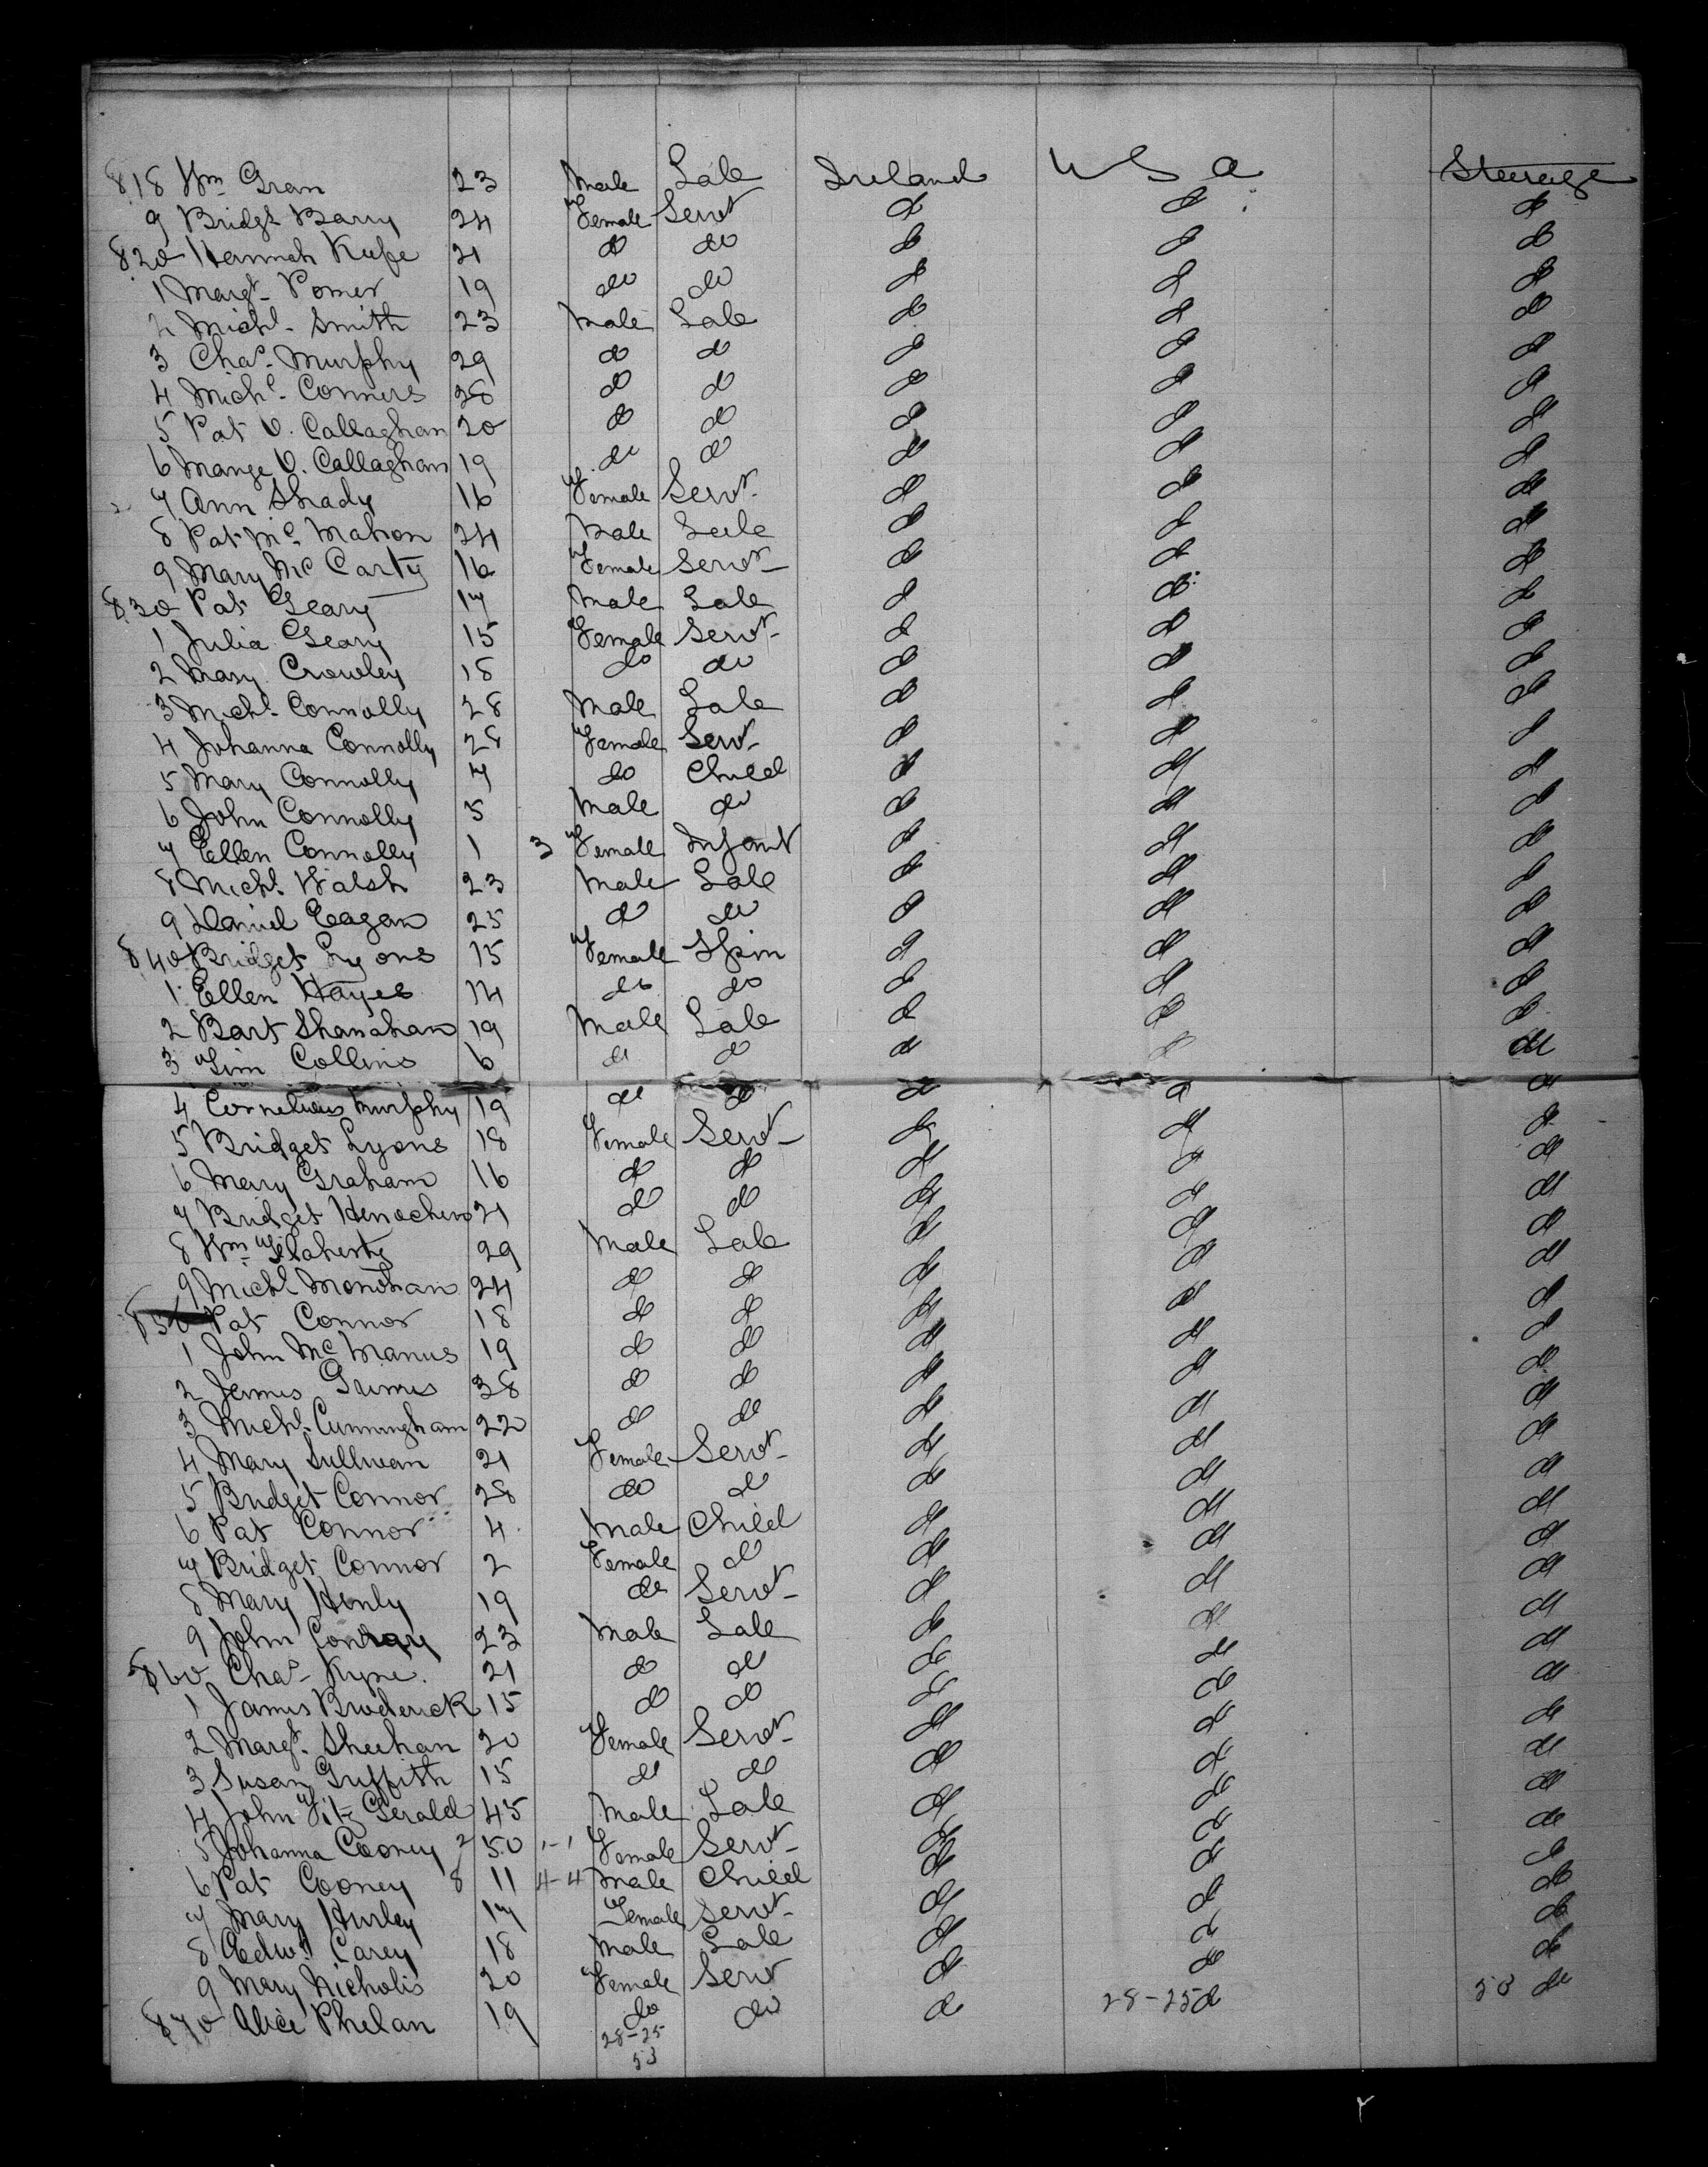 818 Wm Gran 23 Male Lab Ireland U S A Steerage
9 Bridgt Barry 24 Female Servt do do do
820 Hannah Keefe 21 do do do do do
1 Margt Power 19 do do do do do
2 Michl Smith 23 Male Lab do do do
3 Chas Murphy 29 do do do do do
4 Michl Conners 28 do do do do do
5 Pat O. Callaghan 20 do do do do do
6 O. Callaghan 19 do do do do do
7 Ann Shady 16 Female Servt do do do
8 Pat Mc Mahon 24 Male Lab do do do
9 Mary Mc Carty 16 Female Servt do do do
830 Pat Geary 17 Male Lab do do do
1 Julia Geary 15 Female Servt do do do
2 Mary Crowley 18 do do do do do
3 Michl Connolly 28 Male Lab do do do
4 Johanna Connolly 28 Female Servt do do do
5 Mary Connolly 7 do Child do do do
6 John Connolly 5 Male do do do do
7 Ellen Connolly 1 3 Female Infant do do do
8 Michl Walsh 23 Male Lab do do do
9 Daniel Eagan 25 do do do do do
840 Bridget Lyons 15 Female Spin do do do
1 Ellen Hayes 14 do do do do do
2 Bart Shanahan 19 Male Lab do do do
3 Tim Collins 6 do do do do do
4 Cornelius Murphy 19 do do do do do
5 Bridget Lyons 18 Female Servt do do do
6 Mary Graham 16 do do do do do
7 Bridget 21 do do do do do
8 Wm Flaherty 29 Male Lab do do do
9 Michl Monohan 24 do do do do do
850 Pat Connor 18 do do do do do
1 John Mc Manus 19 do do do do do
2 James Grimes 38 do do do do do
3 Michl Cunningham 22 do do do do do
4 Mary Sullivan 21 Female Servt do do do
5 Bridget Connor 28 do do do do do
6 Pat Connor 4 Male Child do do do
7 Bridget Connor 2 Female do do do do
8 Mary Henly 19 do Servt do do do
9 John Conray 23 Male Lab do do do
860 Chas 21 do do do do do
1 James Broderick 15 do do do do do
2 Margt Sheehan 20 Female Servt do do do
3 Susan Griffith 15 do do do do do
4 John Fitz Gerald 45 Male Lab do do do
5 Johanna Cooney 2 50 1-1 Female Servt do do do
6 Pat Cooney 8 11 4-4 Male Child do do do
7 Mary Hurley 17 Female Servt do do do
8 Edwd Carey 18 Male Lab do do do
9 Mary Nicholis 20 Female Servt do do do
870 Alice Phelan 19 do do do 28-25 do 53 do
28-25
53